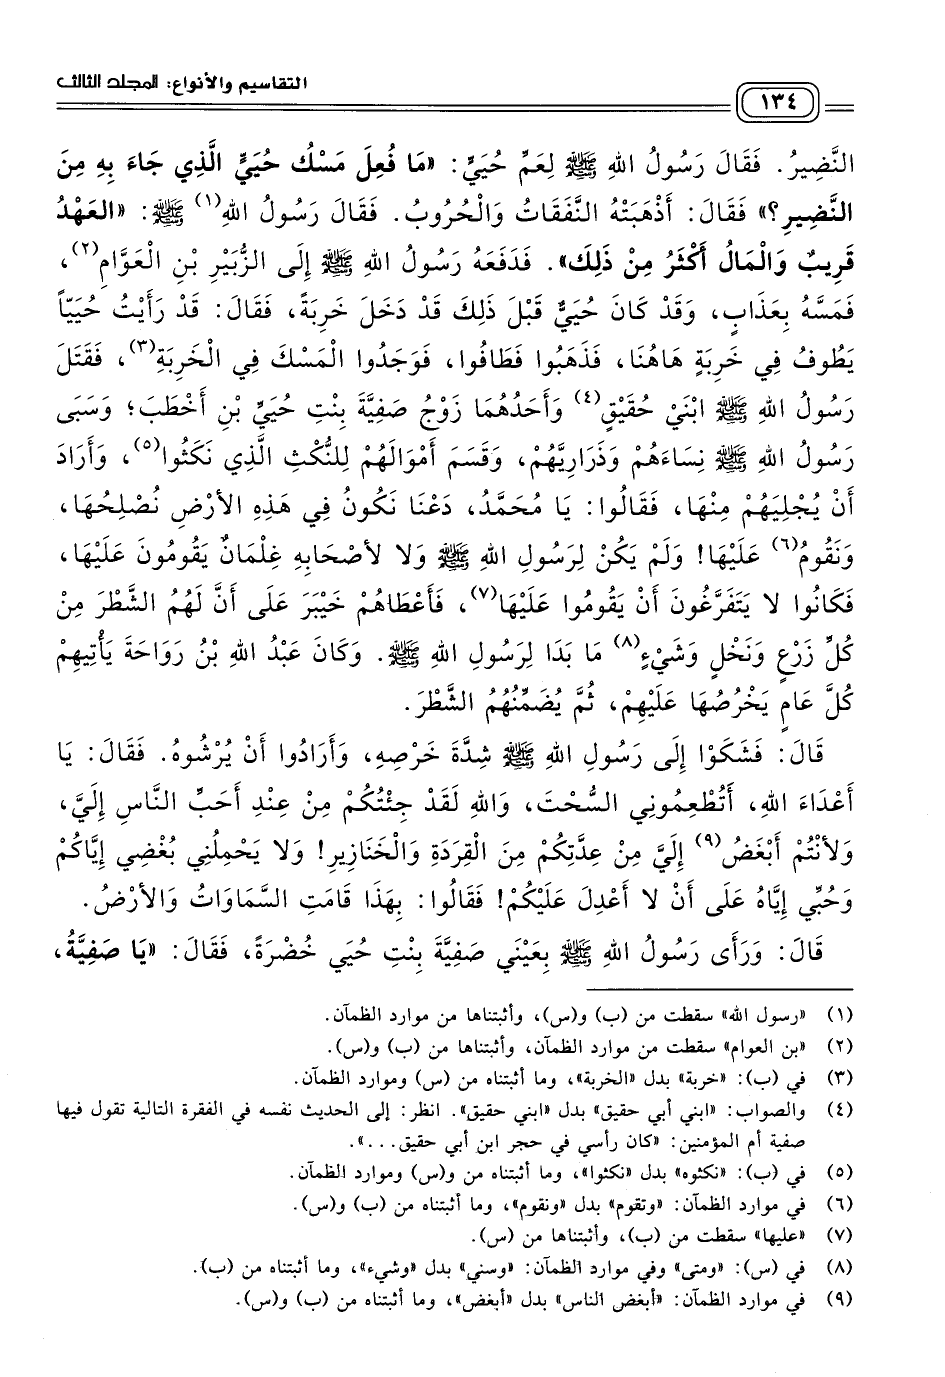 التقاسيم والأنواع: المجلد الثالث
١٣٤
النَّضِيرُ. فَقَالَ رَسُولُ اللهِ ﷺ لِعَمِّ حُيَيٍّ: «مَا فُعِلَ مَسْكُ حُيَيٍّ الَّذِي جَاءَ بِهِ مِنَ
النَّضِيرِ؟» فَقَالَ: أَذْهَبَتْهُ النَّفَقَاتُ وَالْحُرُوبُ. فَقَالَ رَسُولُ اللهِ(١) ﷺ: «الْعَهْدُ
قَرِيبٌ وَالْمَالُ أَكْثَرُ مِنْ ذَلِكَ». فَدَفَعَهُ رَسُولُ اللهِ ﷺ إِلَى الزُّبَيْرِ بْنِ الْعَوَّامِ(٢)،
فَمَسَّهُ بِعَذَابٍ، وَقَدْ كَانَ حُيَيٌّ قَبْلَ ذَلِكَ قَدْ دَخَلَ خَرِبَةً، فَقَالَ: قَدْ رَأَيْتُ حُيَيّاً
يَطُوفُ فِي خَرِبَةٍ هَاهُنَا، فَذَهَبُوا فَطَافُوا، فَوَجَدُوا الْمَسْكَ فِي الْخَرِبَةِ(٣)، فَقَتَلَ
رَسُولُ اللهِ ﷺ ابْنَيْ حُقَيْقٍ(٤) وَأَحَدُهُمَا زَوْجُ صَفِيَّةَ بِنْتِ حُيَيِّ بْنِ أَخْطَبَ؛ وَسَبَى
رَسُولُ اللهِ ﷺ نِسَاءَهُمْ وَذَرَارِيَّهُمْ، وَقَسَمَ أَمْوَالَهُمْ لِلنُّكْثِ الَّذِي نَكَثُوا(٥)، وَأَرَادَ
أَنْ يُجْلِيَهُمْ مِنْهَا، فَقَالُوا: يَا مُحَمَّدُ، دَعْنَا نَكُونُ فِي هَذِهِ الأَرْضِ نُصْلِحُهَا،
وَنَقُومُ(٦) عَلَيْهَا! وَلَمْ يَكُنْ لِرَسُولِ اللهِ ﷺ وَلا لأَصْحَابِهِ غِلْمَانٌ يَقُومُونَ عَلَيْهَا،
فَكَانُوا لا يَتَفَرَّغُونَ أَنْ يَقُومُوا عَلَيْهَا(٧)، فَأَعْطَاهُمْ خَيْبَرَ عَلَى أَنَّ لَهُمُ الشَّطْرَ مِنْ
كُلِّ زَرْعٍ وَنَخْلٍ وَشَيْءٍ(٨) مَا بَدَا لِرَسُولِ اللهِ ﷺ. وَكَانَ عَبْدُ اللهِ بْنُ رَوَاحَةَ يَأْتِيهِمْ
كُلَّ عَامٍ يَخْرُصُهَا عَلَيْهِمْ، ثُمَّ يُضَمِّنُهُمُ الشَّطْرَ.
قَالَ: فَشَكَوْا إِلَى رَسُولِ اللهِ ﷺ شِدَّةَ خَرْصِهِ، وَأَرَادُوا أَنْ يُرْشُوهُ. فَقَالَ: يَا
أَعْدَاءَ اللهِ، أَتُطْعِمُونِي السُّحْتَ، وَاللهِ لَقَدْ جِئْتُكُمْ مِنْ عِنْدِ أَحَبِّ النَّاسِ إِلَيَّ،
وَلأَنْتُمْ أَبْغَضُ(٩) إِلَيَّ مِنْ عِدَّتِكُمْ مِنَ الْقِرَدَةِ وَالْخَنَازِيرِ! وَلا يَحْمِلُنِي بُغْضِي إِيَّاكُمْ
وَحُبِّي إِيَّاهُ عَلَى أَنْ لا أَعْدِلَ عَلَيْكُمْ! فَقَالُوا: بِهَذَا قَامَتِ السَّمَاوَاتُ وَالأَرْضُ.
قَالَ: وَرَأَى رَسُولُ اللهِ ﷺ بِعَيْنَي صَفِيَّةَ بِنْتِ حُيَي خُضْرَةً، فَقَالَ: «يَا صَفِيَّةُ،
(١) «رسول الله» سقطت من (ب) و(س)، وأثبتناها من موارد الظمآن.
(٢) «بن العوام» سقطت من موارد الظمآن، وأثبتناها من (ب) و(س).
(٣) في (ب): «خربة» بدل «الخربة»، وما أثبتناه من (س) وموارد الظمآن.
(٤) والصواب: «ابني أبي حقيق» بدل «ابني حقيق». انظر: إلى الحديث نفسه في الفقرة التالية تقول فيها
صفية أم المؤمنين: «كان رأسي في حجر ابن أبي حقيق...».
(٥) في (ب): «نكثوه» بدل «نكثوا»، وما أثبتناه من و(س) وموارد الظمآن.
(٦) في موارد الظمآن: «وتقوم» بدل «ونقوم»، وما أثبتناه من (ب) و(س).
(٧) «عليها» سقطت من (ب)، وأثبتناها من (س).
(٨) في (س): «ومتى» وفي موارد الظمآن: «وسني» بدل «وشيء»، وما أثبتناه من (ب).
(٩) في موارد الظمآن: «أبغض الناس» بدل «أبغض»، وما أثبتناه من (ب) و(س).